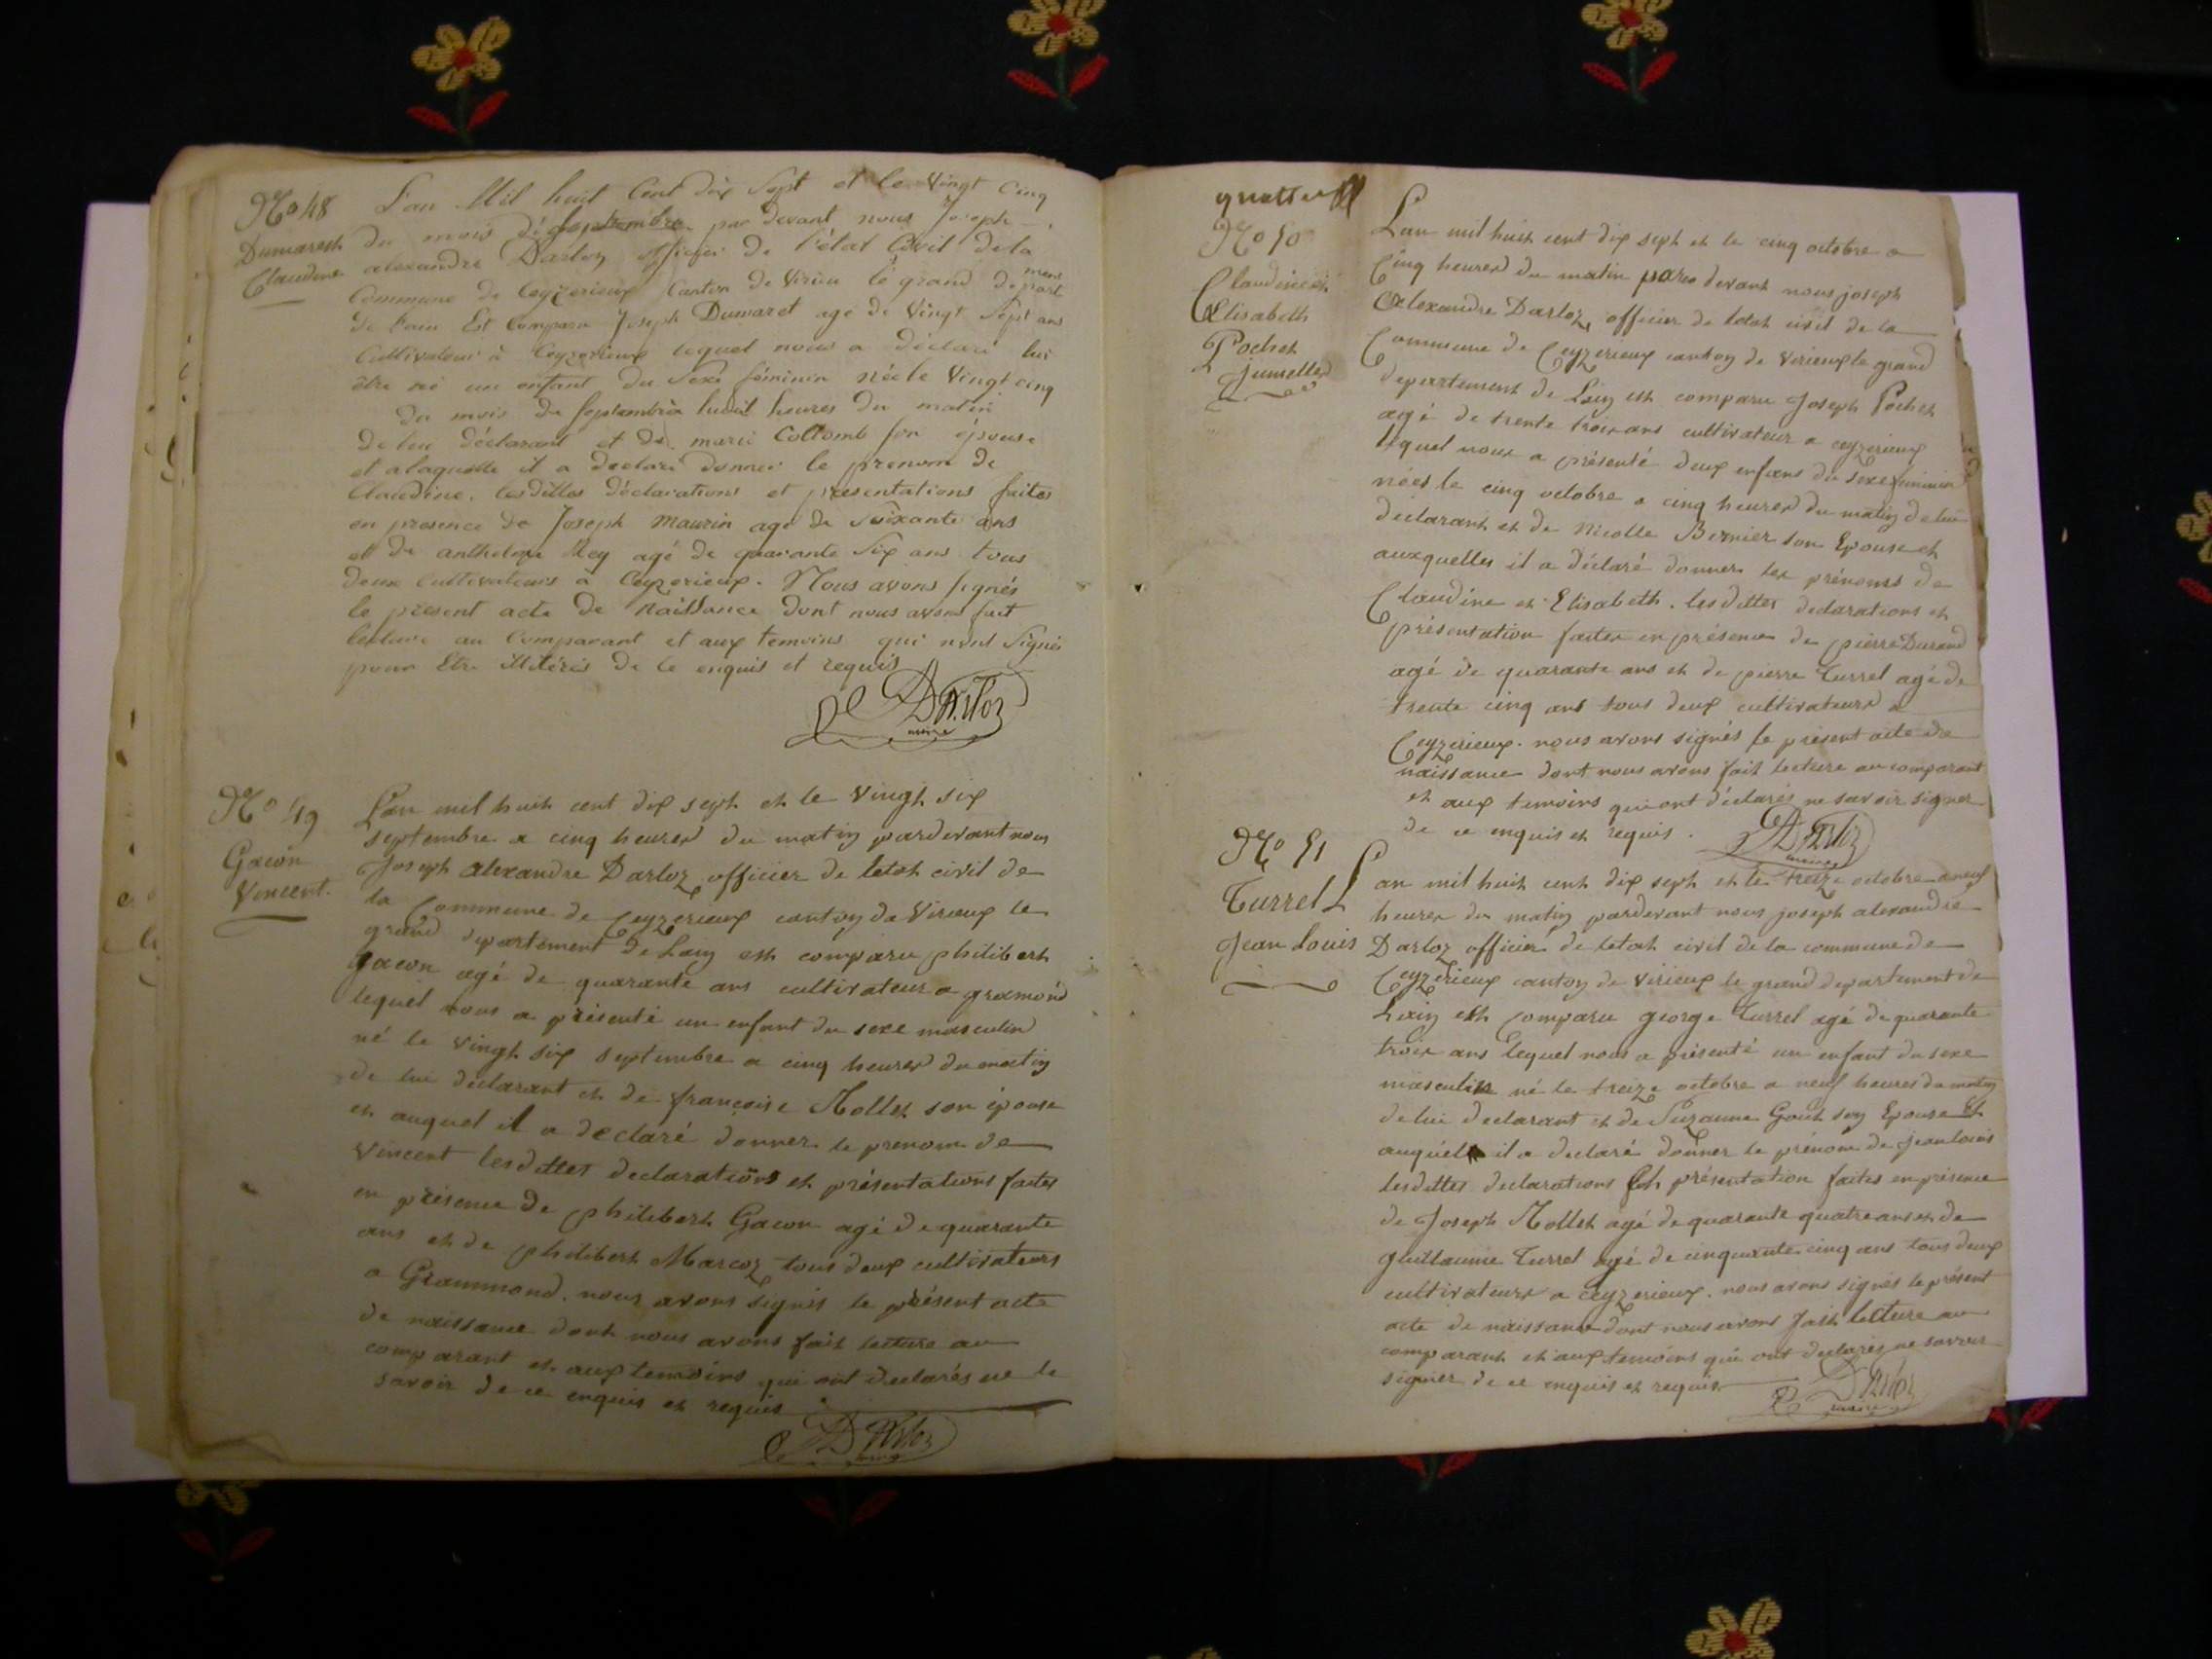 No 48
Dumarest
Claudine
L'an Mil huit Cent dix Sept et le Vingt Cinq
du mois de Septembre par devant nous Joseph
alexandre Darloz officier de l'état Civil de la
Commune de Ceyzerieux Canton de Virieu le grand depart
ment
de l'ain Est Comparu Joseph Dumaret agé de Vingt Sept ans
Cultivateur à Ceyzerieux lequel nous a déclaré lui
être né un enfant du Sexe féminin née le Vingt cinq
du mois de Septembre huit heures du matin
de lui déclarant et de marie Collomb son épouse
et a laquelle il a declaré donner le prenom de
Claudine. les dittes déclarations et présentations faites
en presence de Joseph Maurin agé de Soixante ans
et de anthelme Rey agé de quarante Six ans tous
deux Cultivateurs à Ceyzerieux. Nous avons signés
le present acte de Naissance dont nous avons fait
lecture au Comparant et aux temoins qui n'ont Signés
pour Etre illitérés de ce enquis et requis
Darloz
maire
No 49
Gacon
Vincent.
L'an mil huit cent dix sept et le vingt six
septembre a cinq heures du matin pardevant nous
Joseph alexandre Darloz officier de letat civil de
la Commune de Ceyzerieux canton de Virieux le
grand departement de Lain est comparu philibert
gacon agé de quarante ans cultivateur a gramond
lequel nous a présenté un enfant du sexe masculin
né le vingt six septembre a cinq heures du matin
de lui déclarant et de françoise Mollet son épouse
et auquel il a declaré donner le prenom de
Vincent les dittes declarations et présentations faites
en présence de philibert Gacon agé de quarante
ans et de philibert Marcoz tous deux cultivateurs
a Grammond. nous avons signés le présent acte
de naissance dont nous avons fait lecture au
comparant et aux temoins qui ont declarés ne le
savoir de ce enquis et requis
Darloz
maire
quatre
No 50
Claudine et
Elisabeth
Pochet
Jumelles
Lan mil huit cent dix sept et le cinq octobre a
Cinq heures du matin par devant nous joseph
Alexandre Darloz officier de letat civil de la
Commune de Ceyzerieux canton de Virieux le grand
departement de Lain est comparu Joseph Pochet
agé de trente trois ans cultivateur a ceyzerieux
lequel nous a présenté deux enfans du sexe feminin
nées le cinq octobre a cinq heures du matin de lui
déclarant et de Nicolle Bernier son Epouse et
auxquelles il a déclaré donner les prénoms de
Claudine et Elisabeth. les dittes declarations et
présentation faites en présence de pierre Durand
agé de quarante ans et de pierre Turrel agé de
trente cinq ans tous deux cultivateurs a
Ceyzerieux. nous avons signés le présent acte de
naissance dont nous avons fait lecture au comparant
et aux temoins qui ont déclarés ne savoir signer
de ce enquis et requis.
Darloz
maire
No 51
Turrel
Jean Louis
Lan mil huit cent dix sept et le treize octobre a neuf
heures du matin pardevant nous joseph alexandre
Darloz officier de letat civil de la commune de
Ceyzerieux canton de Virieux le grand departement de
Lain est comparu george Turrel agé de quarante
trois ans lequel nous a présenté un enfant du sexe
masculin né le treize octobre a neuf heures du matin
de lui declarant et de Suzanne Gout son Epouse et
auquel il a declaré donner le prénom de jean louis
les dittes declarations et présentation faites en présence
de Joseph Mollet agé de quarante quatre ans et de
guillaume Turrel agé de cinquante cinq ans tous deux
cultivateurs a Ceyzerieux. nous avons signés le présent
acte de naissance dont nous avons fait lecture au
comparant et aux temoins qui ont declarés ne savoir
signer de ce enquis et requis
Darloz
maire